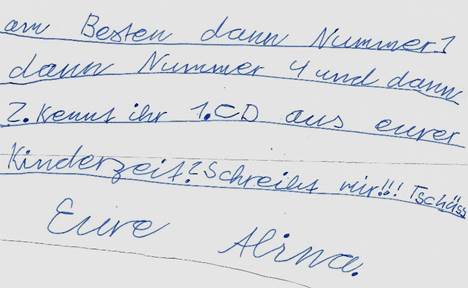 am Besten dann Nummer 1
dann Nummer 4 und dann
2. Kennt ihr 1. CD aus eurer
Kinderzeit? Schreibt mir!!! Tschüss
Eure Alina.